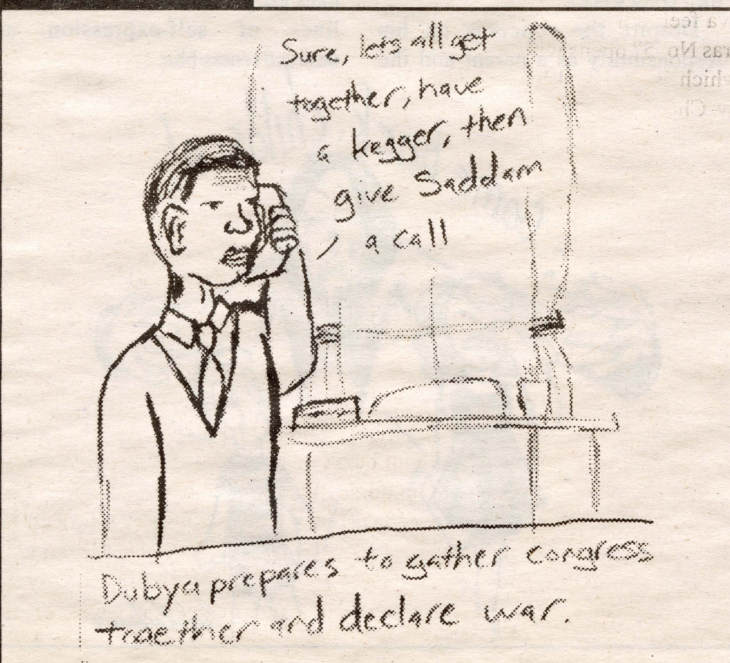 Sure, lets all get
together, have
a kegger, then
give Saddam
a call
Dubya prepares to gather congress
traether and declare war.